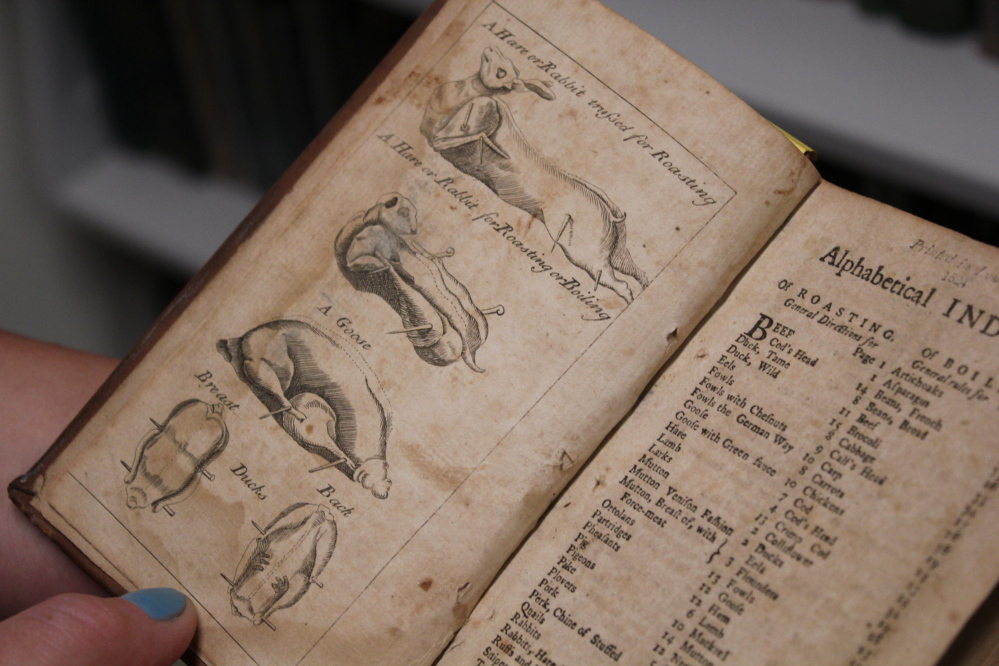 A Hare or Rabbit trussed for Roasting
A Hare or Rabbit for Roasting or Boiling
A Goose
Breast
Ducks
Back
Alphabetical IND
Of ROASTING.
General Directions for
Page 1
BEEF
Cod's Head
Duck, Tame
Duck, Wild
Eels
Fowls
Fowls with Chesnuts
Fowls the German Way
Goose
Goose with Green sauce
Hare
Lamb
Larks
Mutton
Mutton Venison Fashion
Mutton, Breast of, with
Force-meat
Ortolans
Partridges
Pheasants
Pig
Pigeons
Pike
Plovers
Pork
Pork, Chine of Stuffed
Quails
Rabbits
Rabbits, Hare
Ruffs and
Of BOIL
General rules for
Artichoaks
Asparagus
Beans, French
Beans, Broad
Beef
Brocoli
Cabbage
Calf's Head
Carp
Carrots
Chickens
Cod
Cod's Head
Cauliflower
Ducks
Eels
Flounders
Fowls
Goose
Ham
Lamb
Mackrel
Mutton